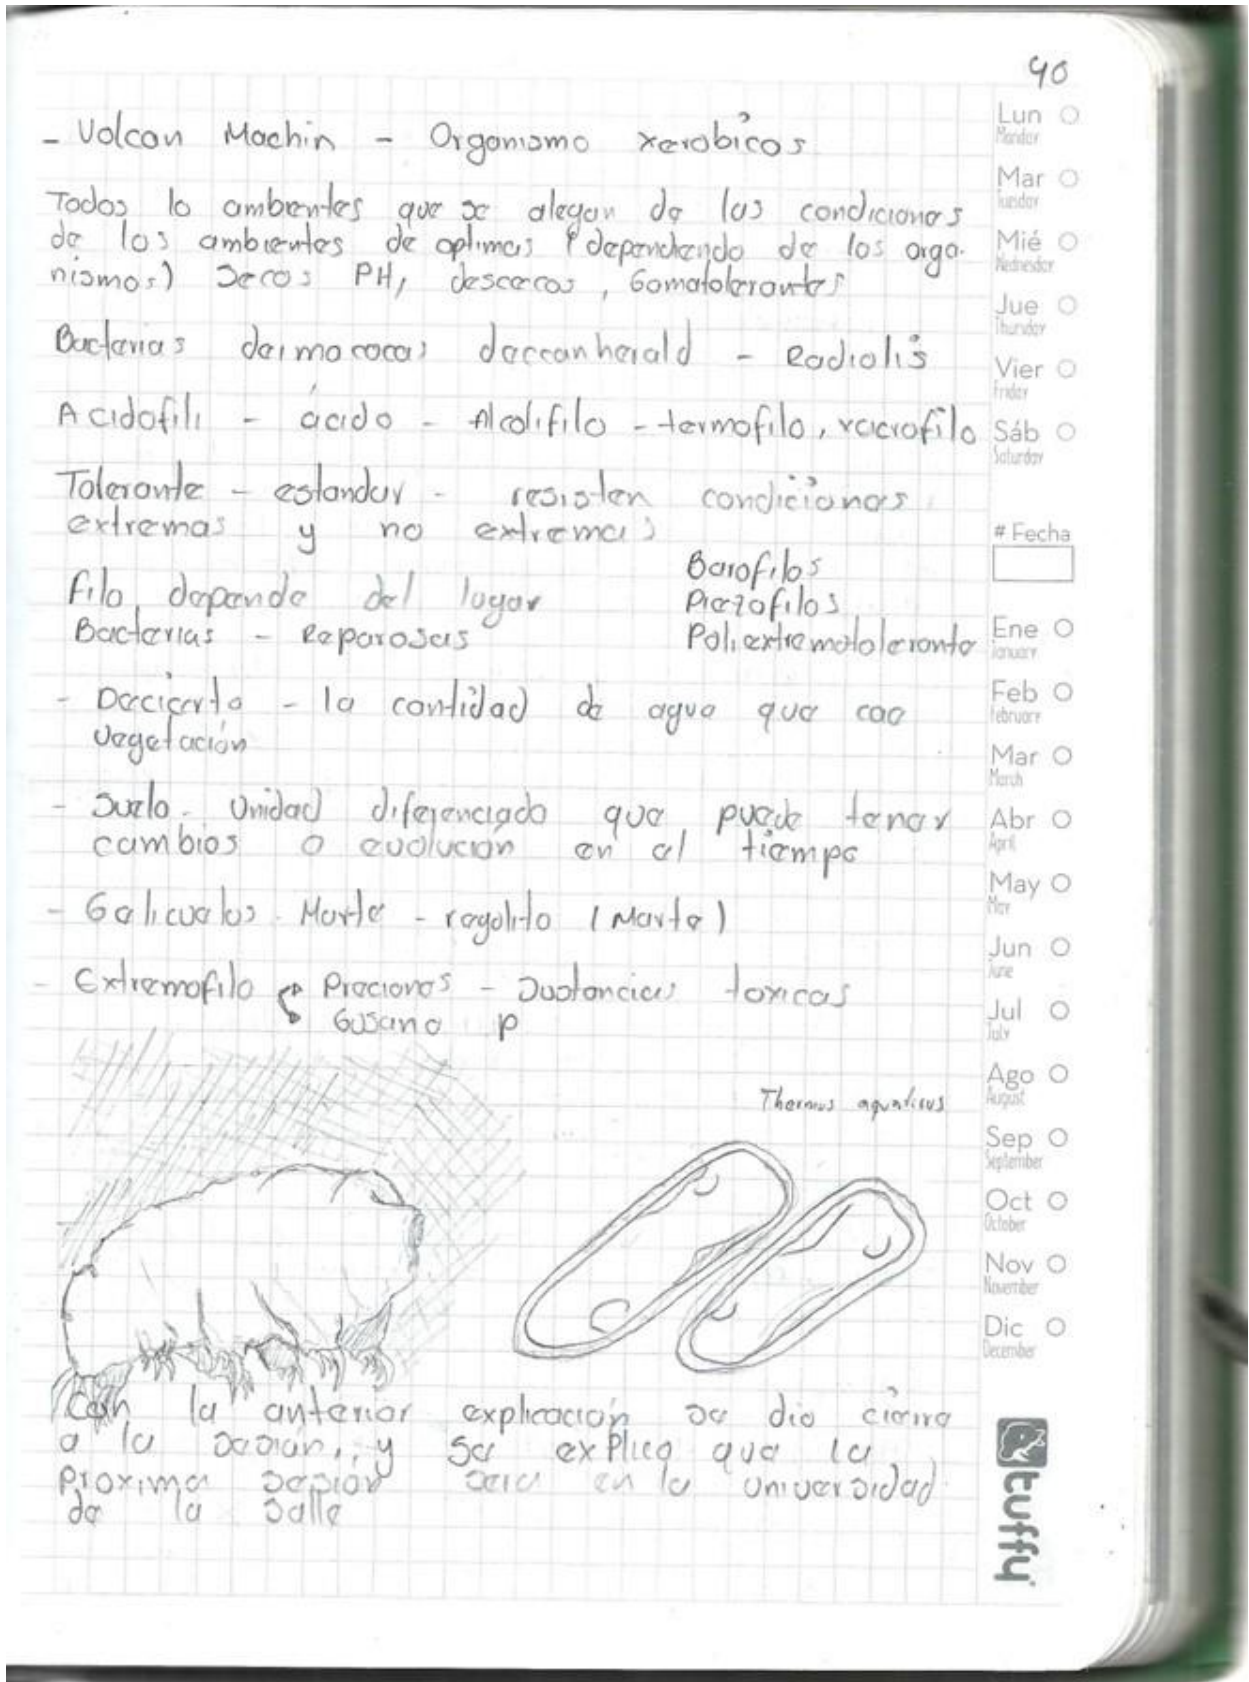 40
- Volcan Machin - Organismo xerobicos
Todos lo ambientes que se alegan de las condiciones
de los ambientes de optimas (dependiendo de los orga-
nismos) secos PH, descecos, Gomatolerantes
Bacterias deimococas deccanherald - Radiolis
Acidofili - ácido - Alcolifilo - termofilo,
Tolerante - estandar - resisten condiciones
extremas y no extremas
Barofilos
Filo, depende del lugar Piezofilos
Bacterias - Reparosas Poliextremotolerante
- Decierto - la cantidad de agua que cae
vegetación
- Suelo - Unidad diferenciado que puede tener
cambios o evolucion en el tiempo
- Galicualos - Marte - regolito (Marte)
- Extremofilo Preciones - Sustancias toxicas
Gusano p
Thermus aquaticus
Con la anterior explicación se dio cierre
a la sesión, y se explico que la
proxima sesion sera en la universidad
de la salle
Lun
Monday
Mar
Tuesday
Mié
Wednesday
Jue
Thursday
Vier
Friday
Sáb
Saturday
# Fecha
Ene
January
Feb
February
Mar
March
Abr
April
May
May
Jun
June
Jul
July
Ago
August
Sep
September
Oct
October
Nov
November
Dic
December
tuffy